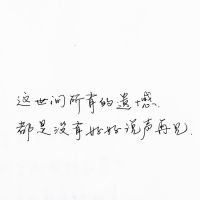 这世间所有的遗憾.
都是没有好好说声再见.